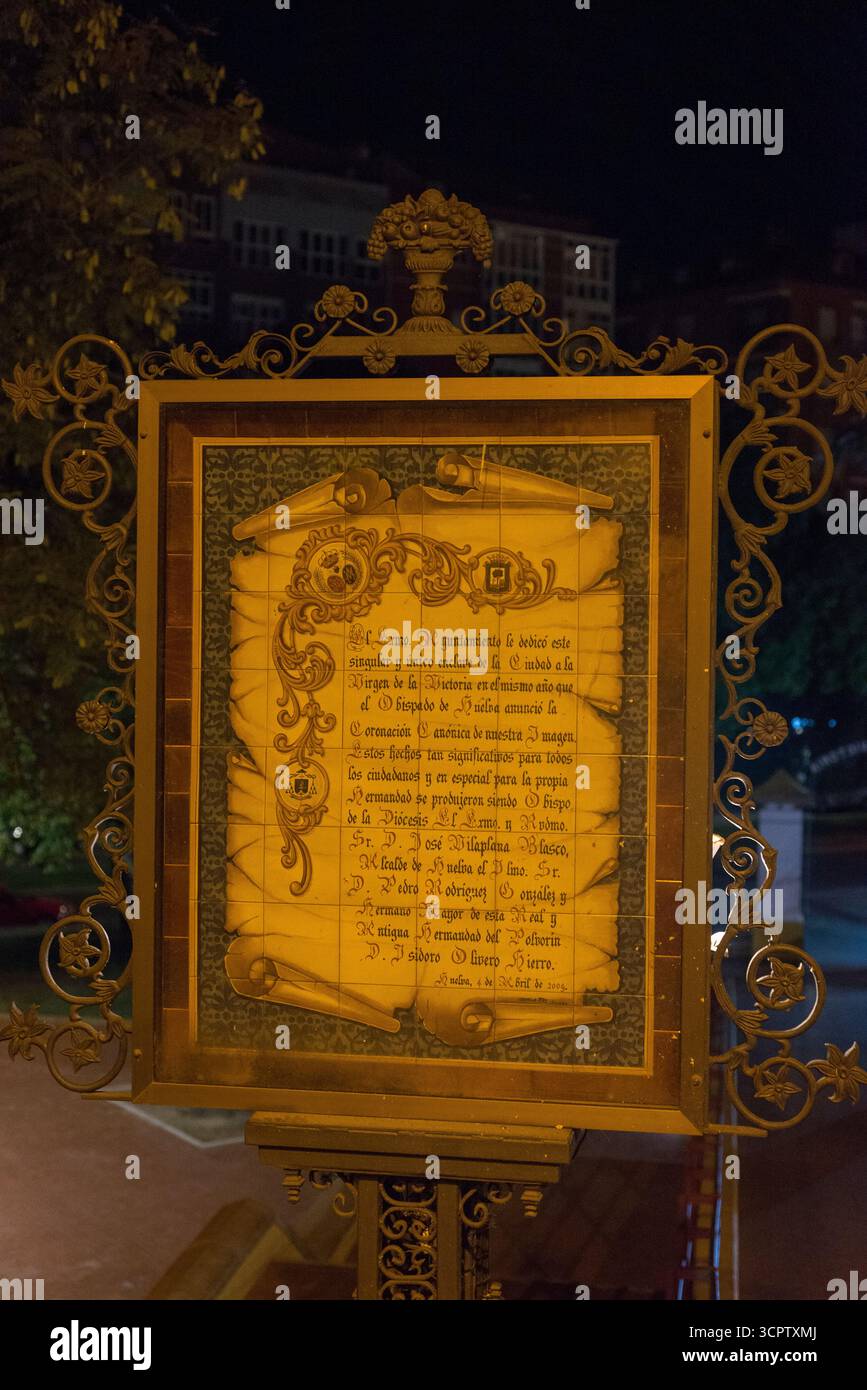 El Exmo. Ayuntamiento le dedicó este
singular y único enclave de la Ciudad a la
Virgen de la Victoria en el mismo año que
el Obispado de Huelva anunció la
Coronación Canónica de nuestra Imagen.
Estos hechos tan significativos para todos
los ciudadanos y en especial para la propia
Hermandad se produjeron siendo Obispo
de la Diócesis El Exmo. y Rvdmo.
Sr. D. José Vilaplana Blasco,
Alcalde de Huelva el Ilmo. Sr.
D. Pedro Rodríguez González y
Hermano Mayor de esta Real y
Antigua Hermandad del Polvorín
D. Isidoro Olivero Hierro.
Huelva, 4 de Abril de 2009.
alamy
alamy
Image ID: 3CPTXMJ
www.alamy.com